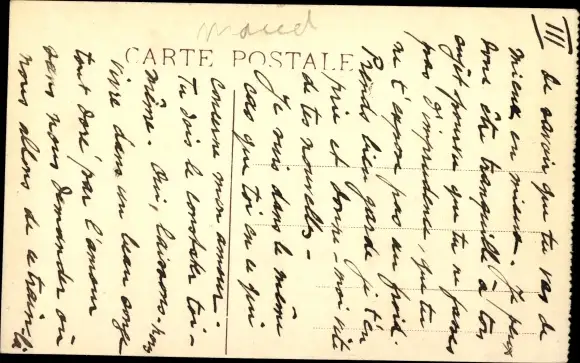 III
De savoir que tu vas de
mieux en mieux. Je peux
donc être tranquille à ton
sujet pourvu que tu ne fasses
pas d'imprudence, que tu
ne t'expose pas au froid.
Prends bien garde je t'en
prie et donne-moi vite
de tes nouvelles -
Je suis dans le même
cas que toi en ce qui
concerne mon amour.
Tu dois le constater toi-
même. Oui, laissons-nous
vivre dans un beau songe
tout doré par l'amour
sans nous demander où
nous allons de ce train-là
CARTE POSTALE